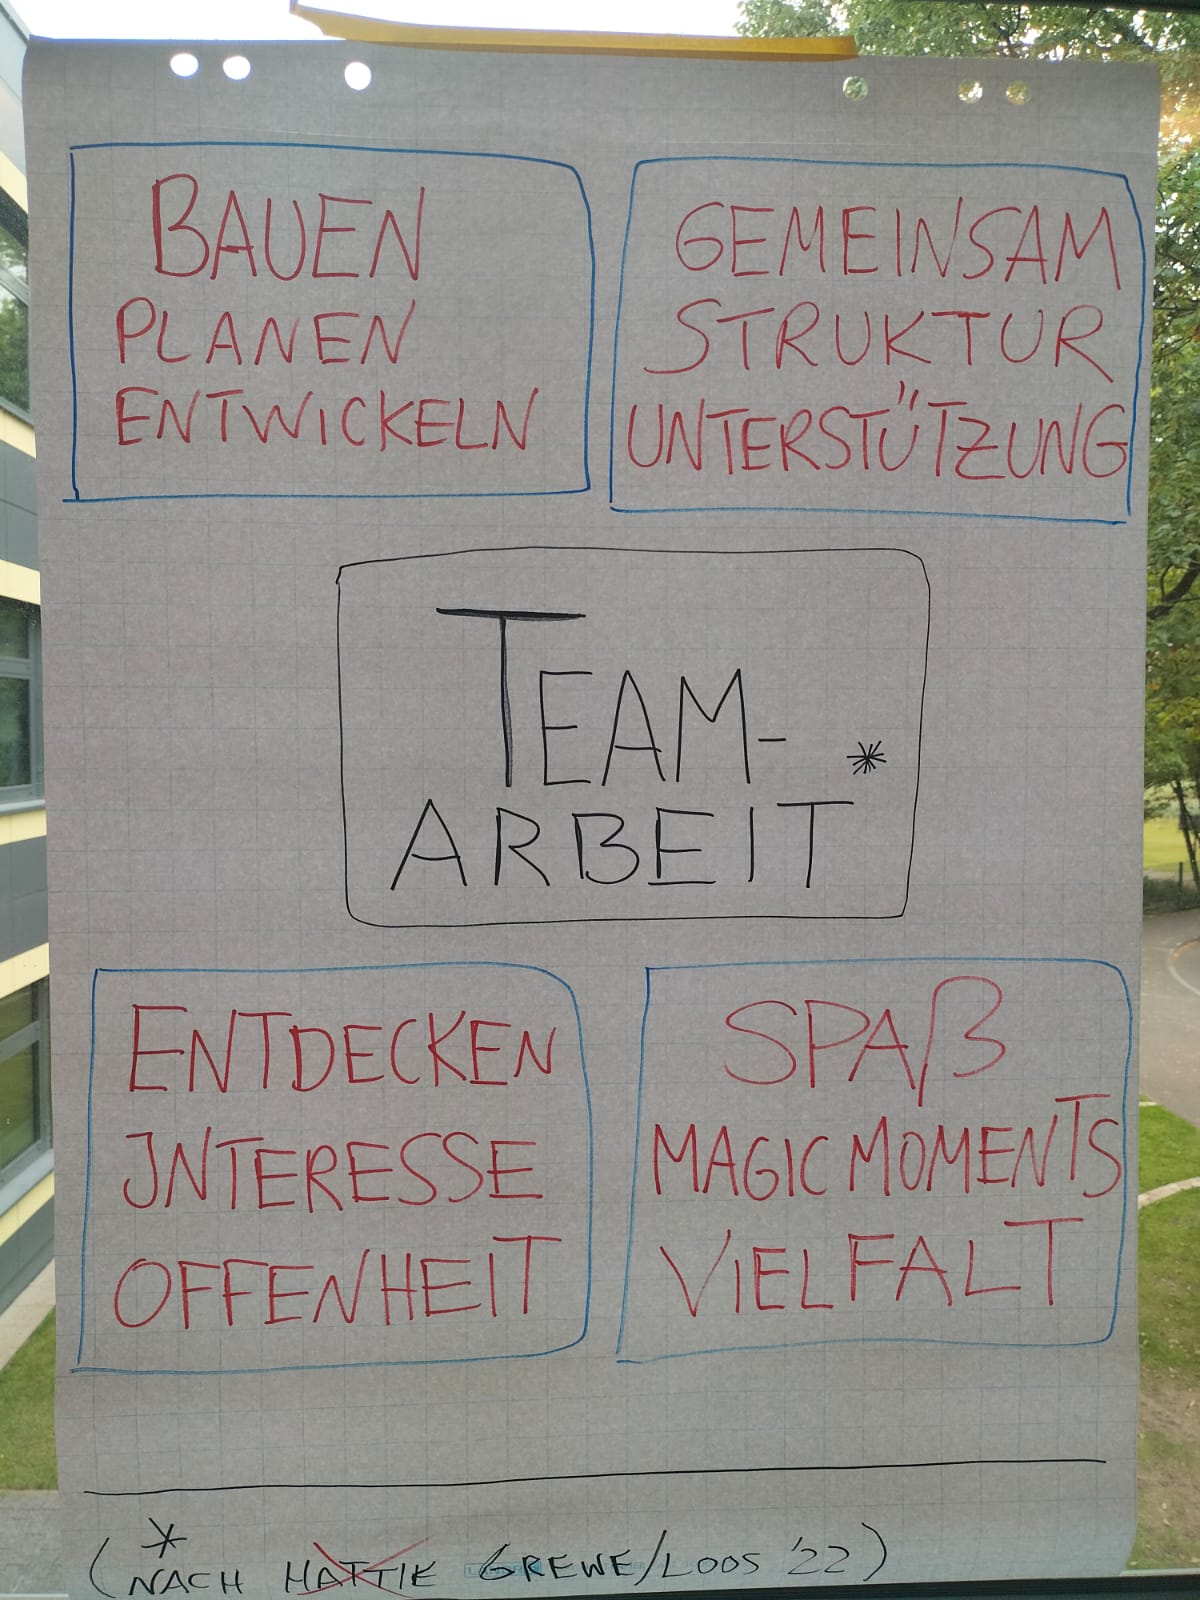 BAUEN
PLANEN
ENTWICKELN
GEMEINSAM
STRUKTUR
UNTERSTÜTZUNG
TEAM- *
ARBEIT
ENTDECKEN
INTERESSE
OFFENHEIT
SPAß
MAGIC MOMENTS
VIELFALT
(* NACH HATTIE GREWE/LOOS '22)